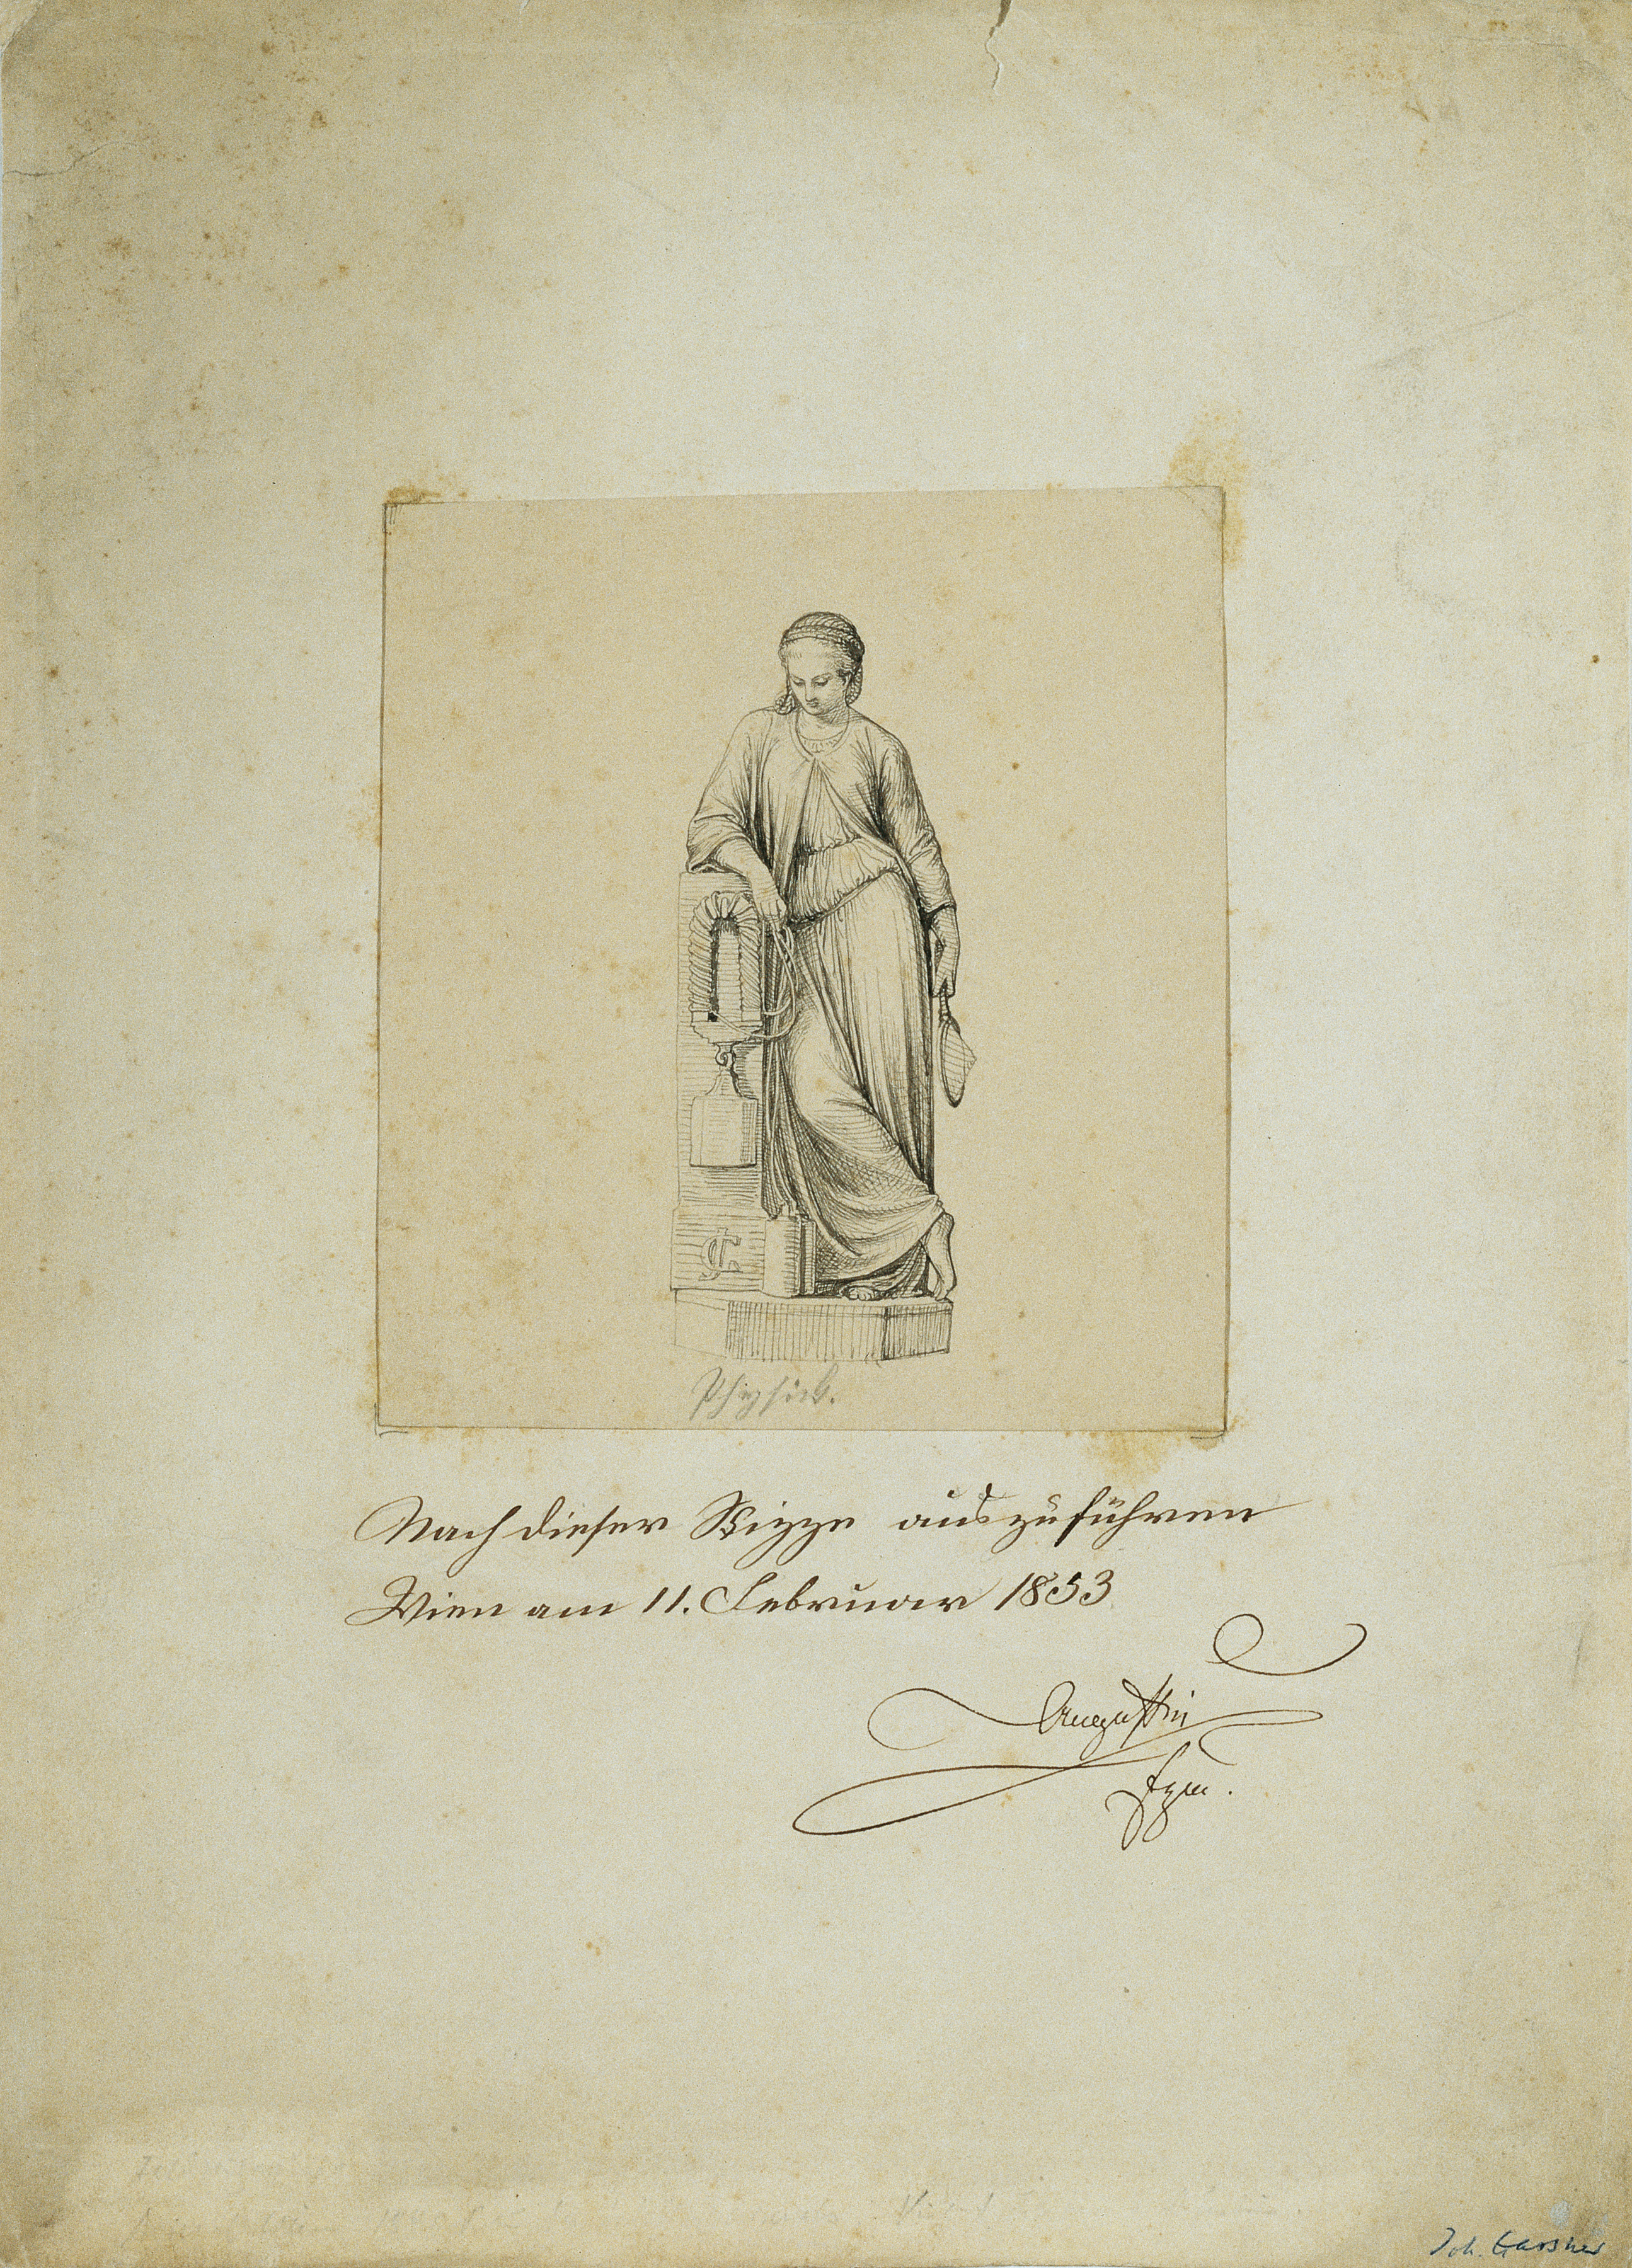 Physick.
Nach dieser Skizze auszuführen
Wien am 11. Februar 1853
Augustin
Fzm.
Joh. Gassner